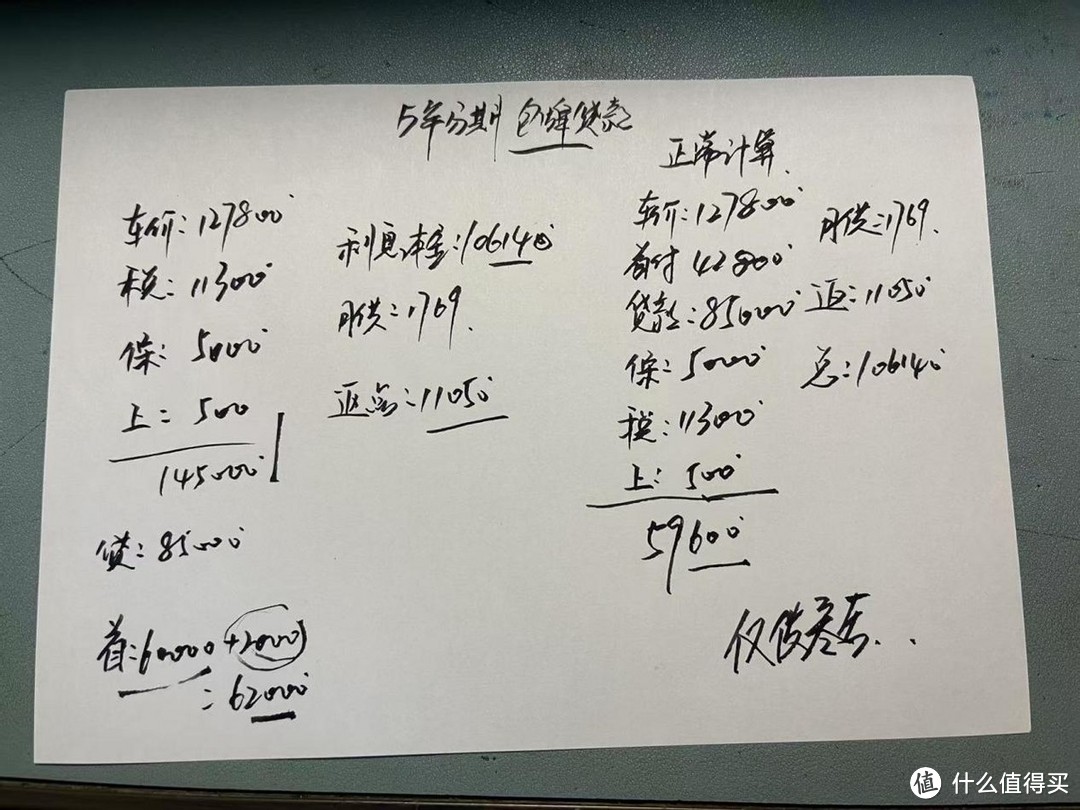 5年分期 包牌贷款
车价:127800
税:11300
保:5000
上:500
145000
贷:85000
首:60000+2000
=62000
利息本金:106140
月供=1769.
返点=11050
正常计算.
车价:127800
首付 42800
贷款:85000
保:5000
税:11300
上:500
59600
月供:1769.
返:11050
总:106140
仅供参考..
值 什么值得买